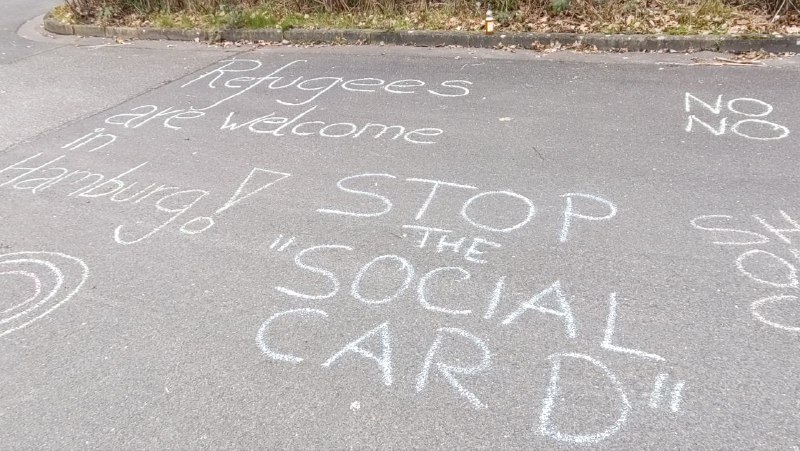 Refugees
are welcome
in
Hamburgo!
STOP
THE
"SOCIAL
CARD"
NO
NO